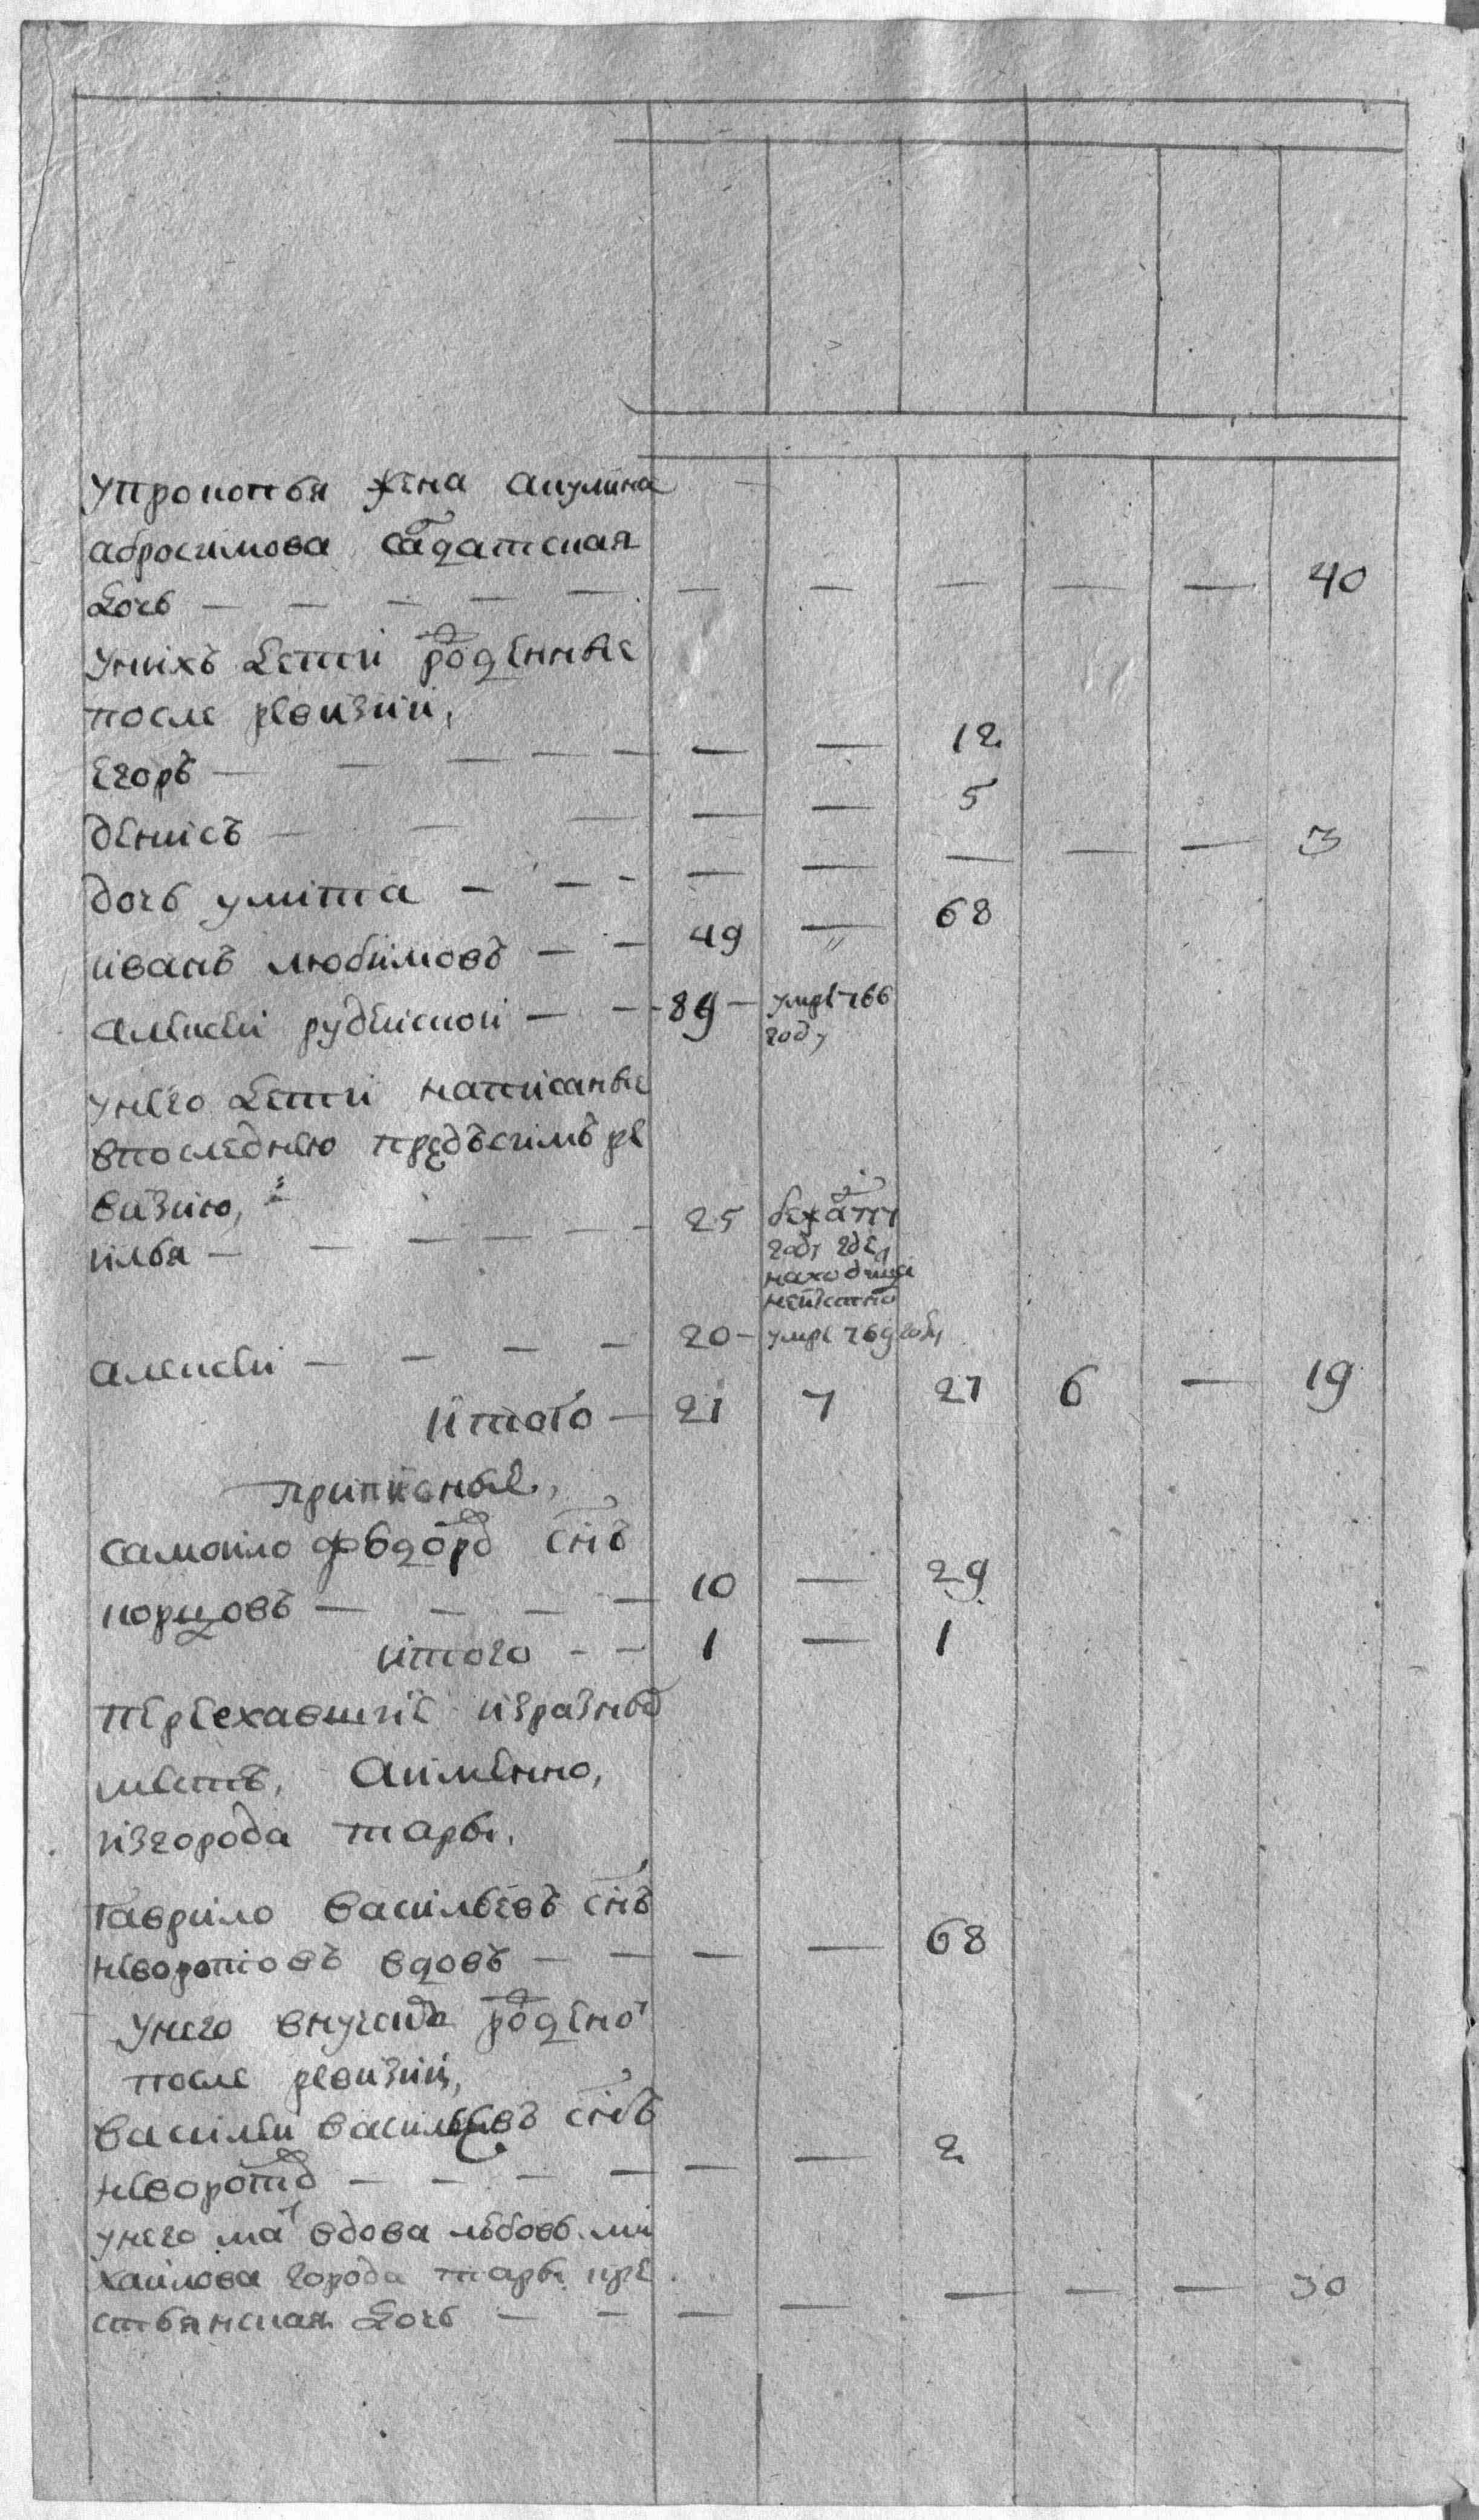 упрокопья жена акулина
абросимова салдатская
дочь — — — — — — — — — — 40
уних детей рожденные
после ревизии,
Егоръ — — — — — — — 12
денисъ — — — — — 5
дочь улита — — — — — — — — 3
иванъ любимовъ — — 49 — 68
алексей рудински — — 89 — умре 766
году
унего дети написаные
впоследнею предъсимъ ре
визию,
илья — — — — — 25 бежа 771
году где
находица
неизвестно
алексей — — — — 20 — умре 769 году
итого — 21 7 27 6 — 19
приписные,
самоило федоров снъ
порцовъ — — — — 10 — 29
итого — — 1 — 1
переехавшие изразных
местъ, аимянно,
изгорода тары,
гаврило васильевъ снъ
неворотовъ вдовъ — — — — 68
унего внучекъ рожденой
после ревизии,
василеи васильевъ снъ
неворотов — — — — — — 2
унего мат вдова любовь ми
хаилова города тары кре
стьянская дочь — — — — — — — 30